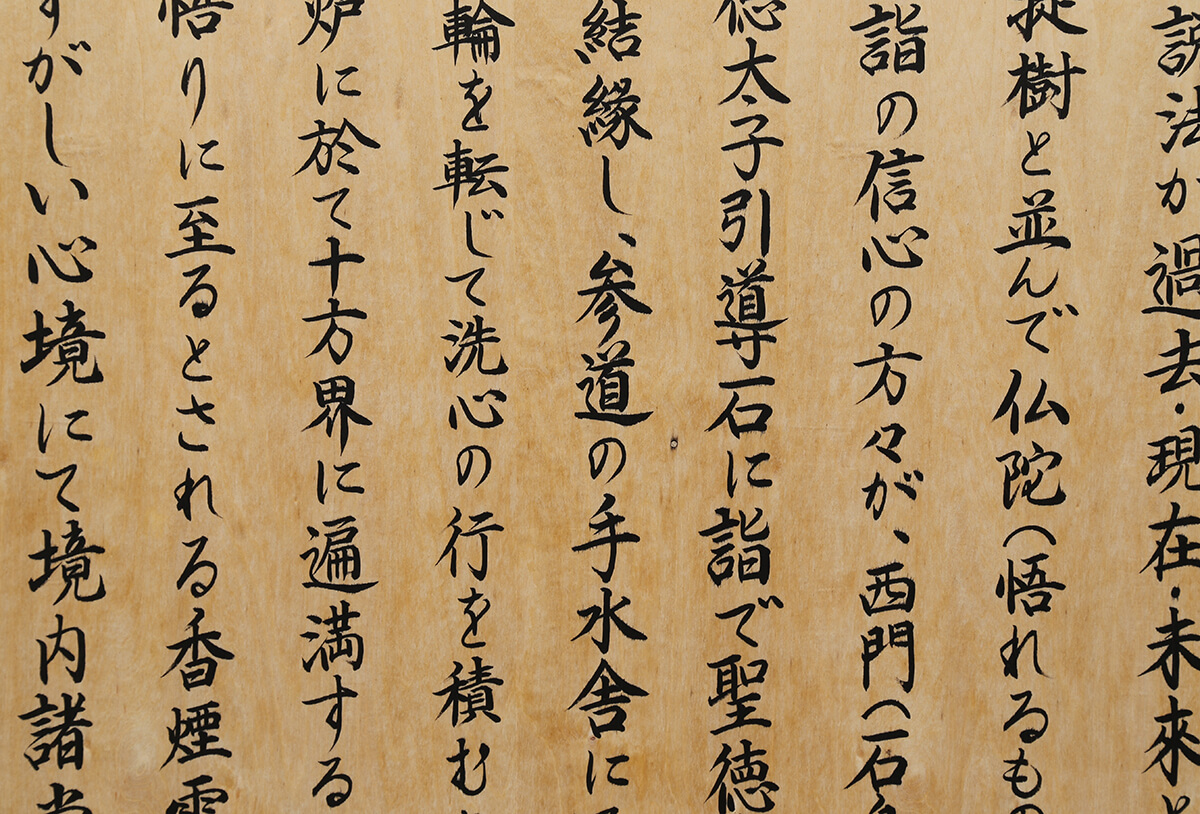 説法が過去・現在・未來と
提樹と並んで仏陀(悟れるもの
詣の信心の方々が、西門(石
徳太子引導石に詣で聖徳
結縁し、参道の手水舎に
輪を転じて洗心の行を積む
炉に於て十方界に遍満する
悟りに至るとされる香煙
すがしい心境にて境内諸堂